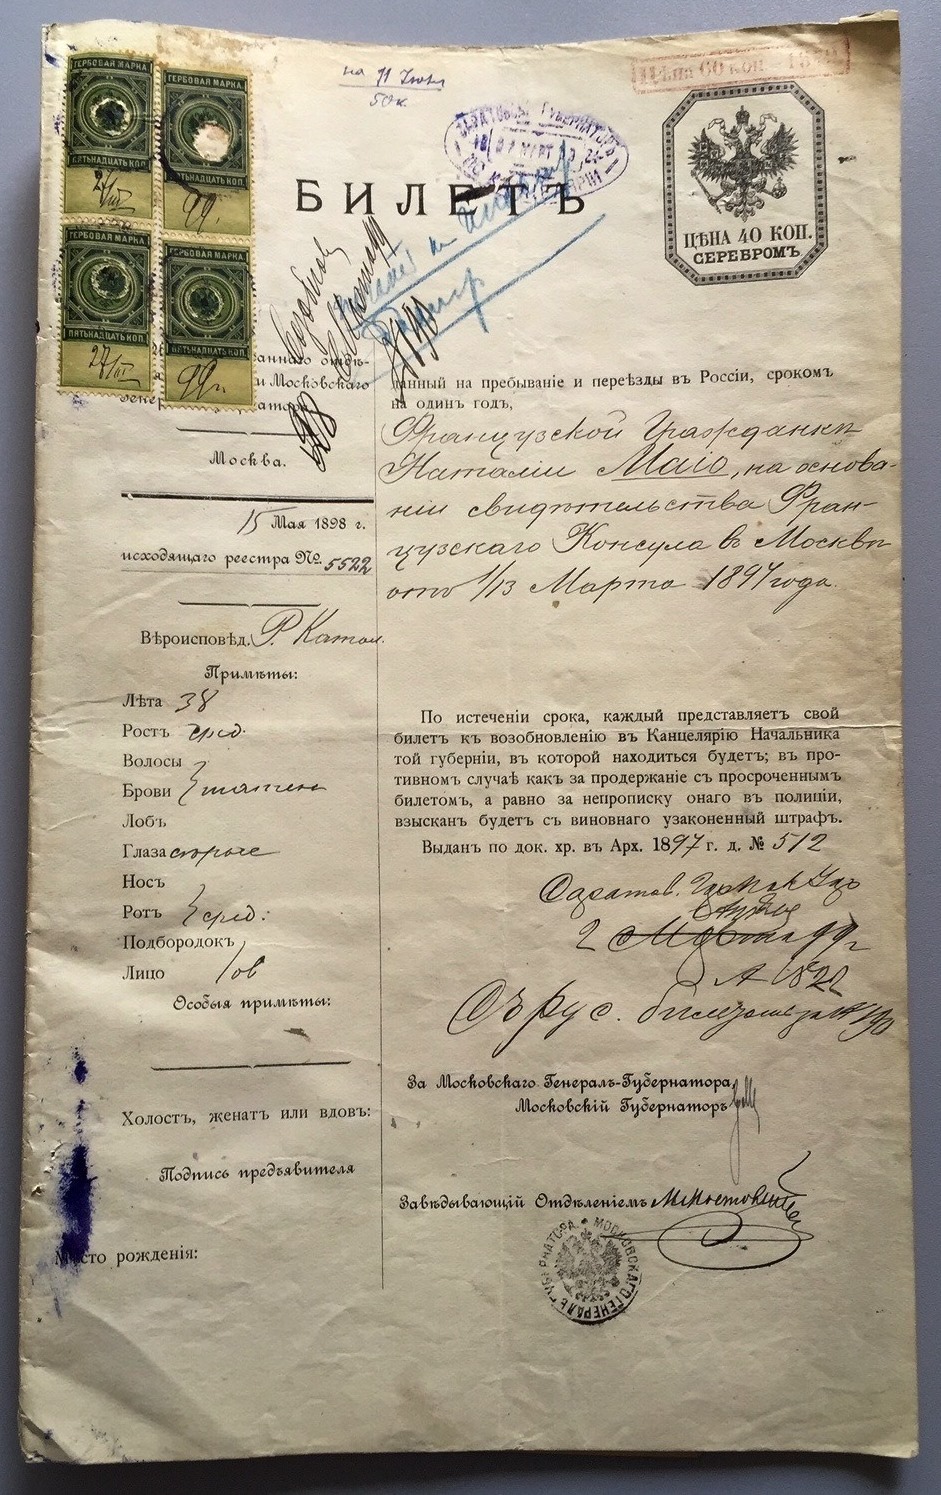 на 11 Июня
50 к
Цѣна 60 коп.
САРАТОВСК. ГУБЕРНАТОРЪ
МАРТ
БИЛЕТЪ
ЦѢНА 40 КОП.
СЕРЕБРОМЪ
ГЕРБОВАЯ МАРКА
ПЯТЬНАДЦАТЬ КОП.
27/III
ГЕРБОВАЯ МАРКА
ПЯТЬНАДЦАТЬ КОП.
99 г.
ГЕРБОВАЯ МАРКА
ПЯТЬНАДЦАТЬ КОП.
27/III
ГЕРБОВАЯ МАРКА
ПЯТЬНАДЦАТЬ КОП.
99 г.
и Московскаго
Москва.
15 Мая 1898 г.
исходящаго реестра № 5522
Вѣроисповѣд. Р. Катол.
Примѣты:
Лѣта 38
Ростъ сред.
Волосы
Брови
Лобъ
Глаза сѣрые
Носъ
Ротъ сред.
Подбородокъ
Лицо ов
Особыя примѣты:
Холостъ, женатъ или вдовъ:
Подпись предъявителя
Мѣсто рожденія:
данный на пребываніе и переѣзды въ Россіи, срокомъ
на одинъ годъ,
Французской Гражданкѣ
Наталіи Маіо, на основа-
ніи свидѣтельства Фран-
цузскаго Консула въ Москвѣ
отъ 1/13 Марта 1897 года.
По истеченіи срока, каждый представляетъ свой
билетъ къ возобновленію въ Канцелярію Начальника
той губерніи, въ которой находиться будетъ; въ про-
тивномъ случаѣ какъ за продержаніе съ просроченнымъ
билетомъ, а равно за непрописку онаго въ полиціи,
взысканъ будетъ съ виновнаго узаконенный штрафъ.
Выданъ по док. хр. въ Арх. 1897 г. д. № 512
Саратов.
2 Марта 99 г
Съ рус.
За Московскаго Генералъ-Губернатора,
Московскій Губернаторъ
Завѣдывающій Отдѣленіемъ
МОСКОВСКАГО ГЕНЕРАЛЪ ГУБЕРНАТОРА